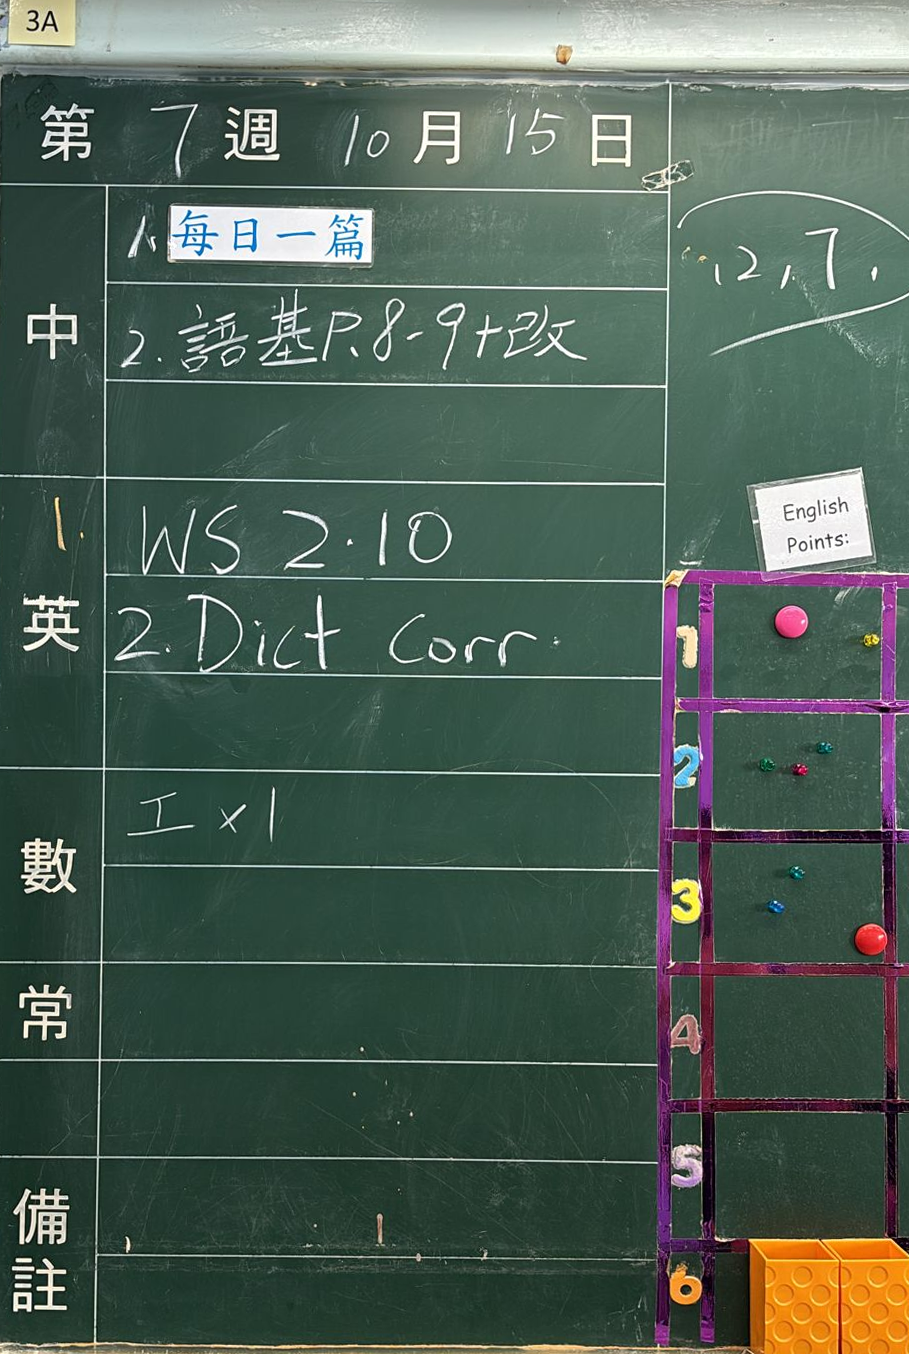 3A
第 7 週 10 月 15 日
12, 7,
中
1. 每日一篇
2. 語基P.8-9+改
英
1. WS 2.10
2. Dict Corr.
數
工 x1
常
備註
English
Points:
1
2
3
4
5
6